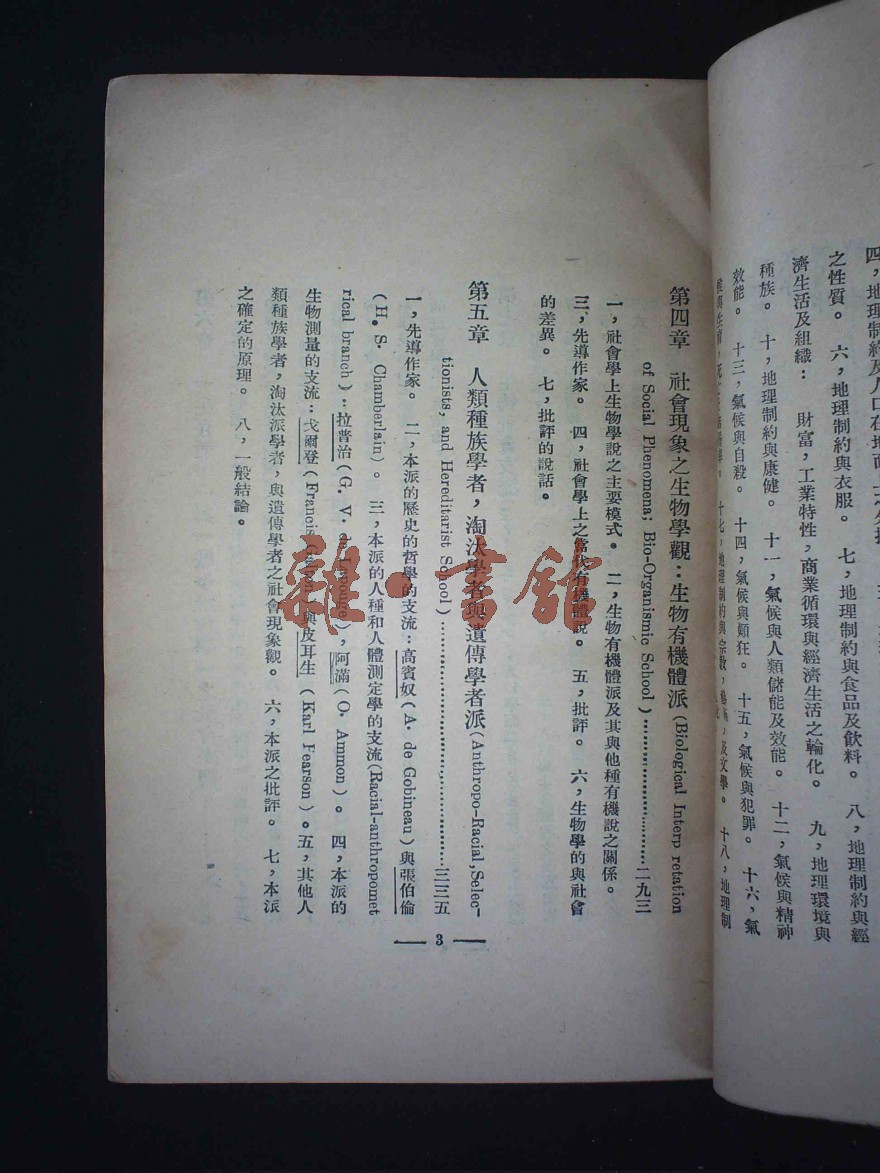 四，地理制約及人口在地面上之分
之性質。　六，地理制約與衣服。　七，地理制約與食品及飲料。　八，地理制約與經
濟生活及組織：　財富，工業特性，商業循環與經濟生活之輪化。　九，地理環境與
種族。　十，地理制約與康健。　十一，氣候與人類儲能及效能。　十二，氣候與精神
效能。　十三，氣候與自殺。　十四，氣候與癲狂。　十五，氣候與犯罪。　十六，氣
十七，地理制約與宗教，　及文學。　十八，地理制
第四章　社會現象之生物學觀：生物有機體派(Biological Interp retation
of Social Phenomena; Bio-Organismic School)……………………二九三
一，社會學上生物學說之主要模式。　二，生物有機體派及其與他種有機說之關係。
三，先導作家。　四，社會學上之當代有機體說。　五，批評。　六，生物學的與社會
的差異。　七，批評的說話。
第五章　人類種族學者，淘汰學者與遺傳學者派(Anthropo-Racial,Selec-
tionists, and Hereditarist School)……………………三三五
一，先導作家。　二，本派的歷史的哲學的支流：高賓奴(A. de Gobineau)與張伯倫
(H. S. Chamberlain)。　三，本派的人種和人體測定學的支流(Racial-anthropomet
rical branch)：拉普治(G. V. de Lapouge)，阿滿(O. Ammon)。　四，本派的
生物測量的支流：戈爾登(Francis Galton)與皮耳生(Karl Fearson)。五，其他人
類種族學者，淘汰派學者，與遺傳學者之社會現象觀。　六，本派之批評。　七，本派
之確定的原理。　八，一般結論。
— 3 —
雜·書館